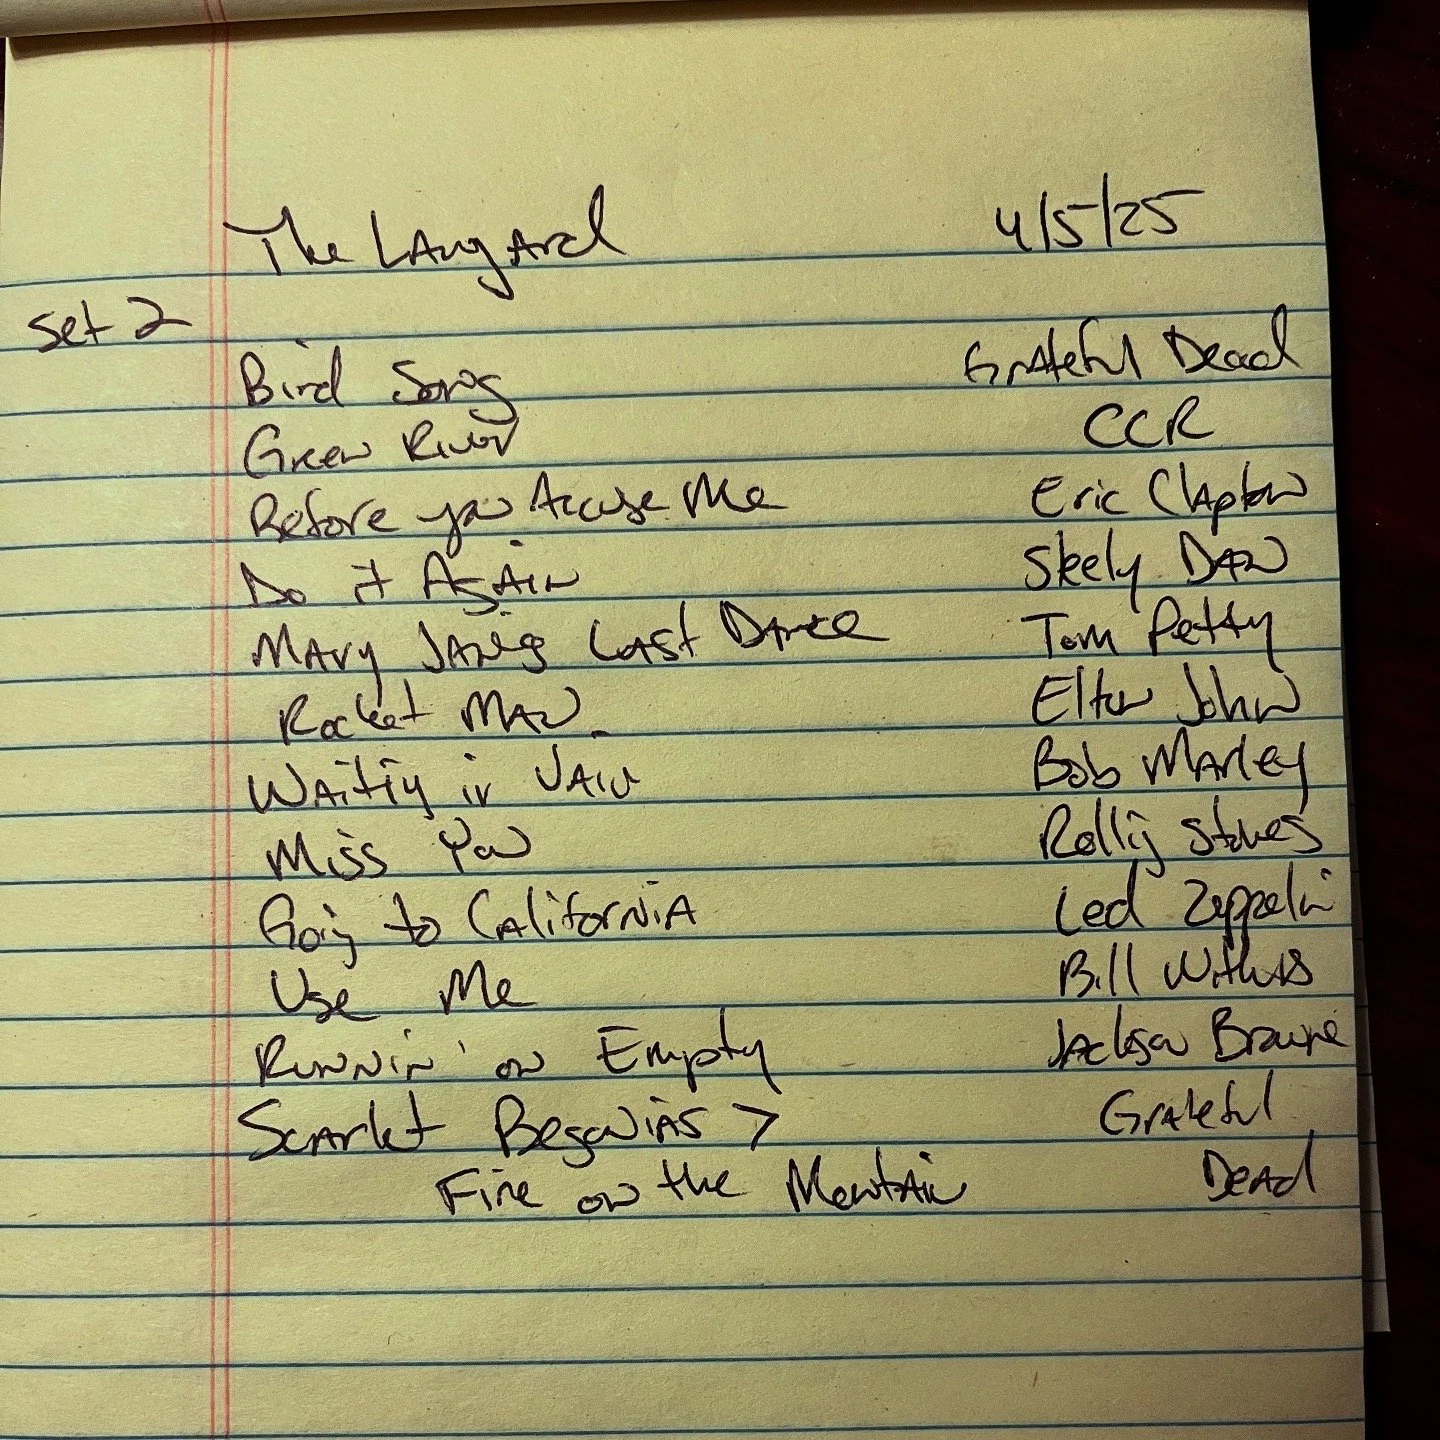 The Lanyard 4/5/25
Set 2
Bird Song Grateful Dead
Green River CCR
Before you Accuse Me Eric Clapton
Do it Again Steely Dan
Mary Janes Last Dance Tom Petty
Rocket Man Elton John
Waiting in Vain Bob Marley
Miss You Rolling Stones
Going to California Led Zeppelin
Use Me Bill Withers
Runnin' on Empty Jackson Browne
Scarlet Begonias > Grateful
Fire on the Mountain Dead